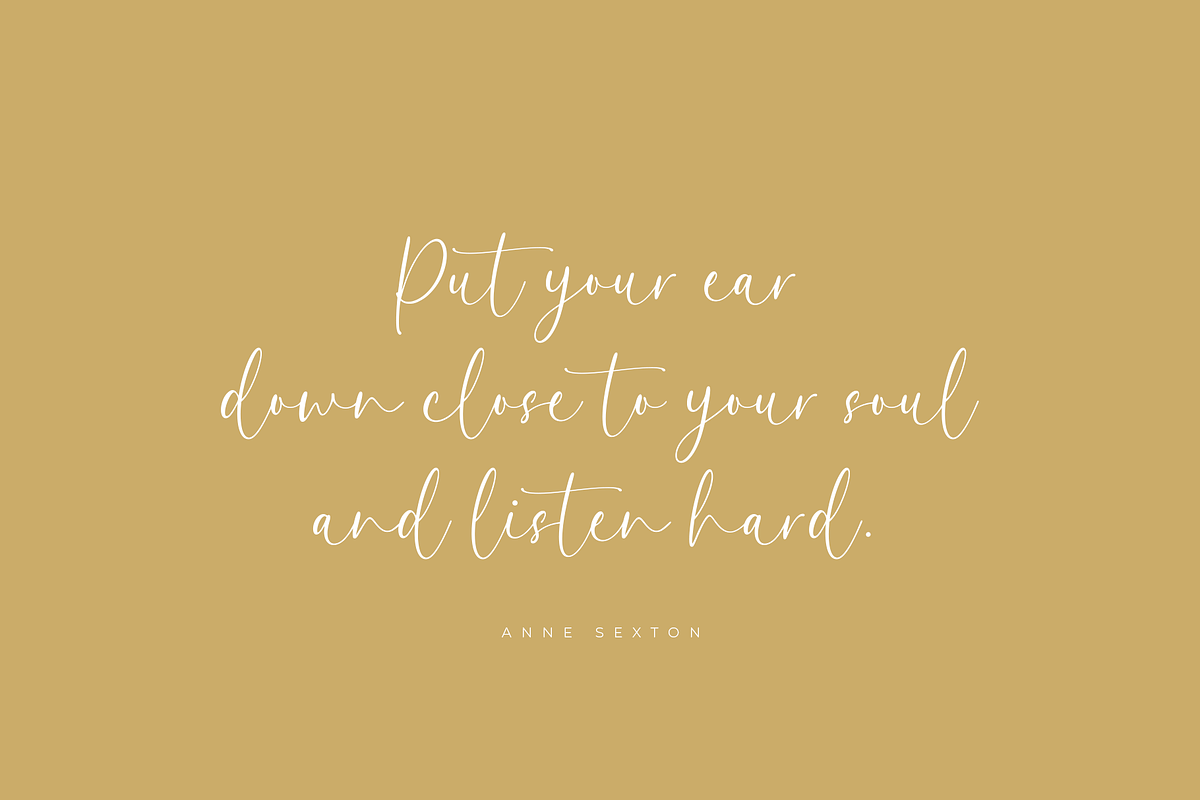 Put your ear
down close to your soul
and listen hard.
ANNE SEXTON